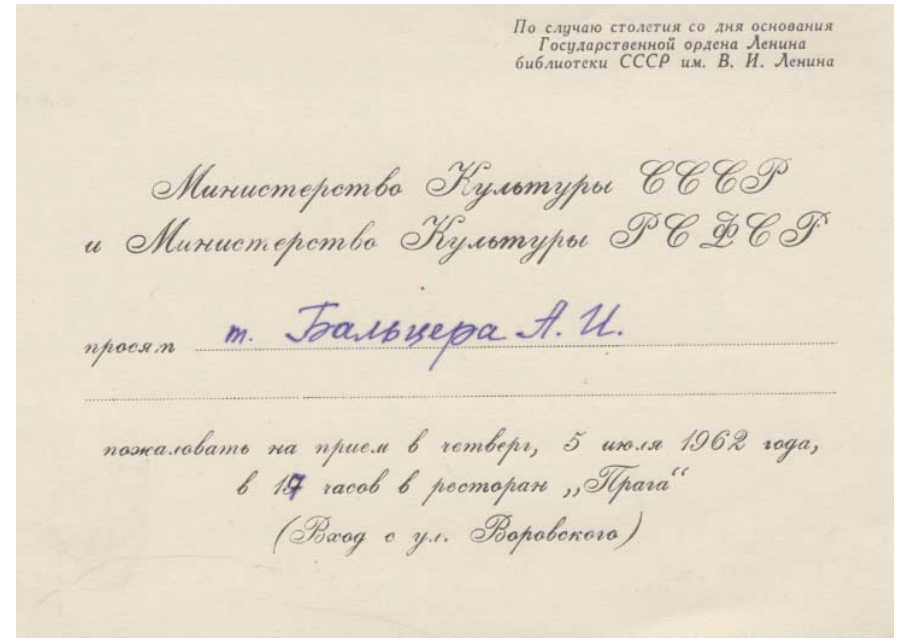 По случаю столетия со дня основания
Государственной ордена Ленина
библиотеки СССР им. В. И. Ленина
Министерство Культуры СССР
и Министерство Культуры РСФСР
просят т. Бальцера А. И.
пожаловать на прием в четверг, 5 июля 1962 года,
в 17 часов в ресторан „Прага“
(Вход с ул. Воровского)